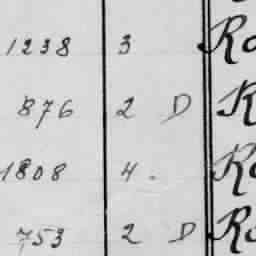 1238 3 Ro
876 2 D R
1808 4. Ro
753 2 D Ro